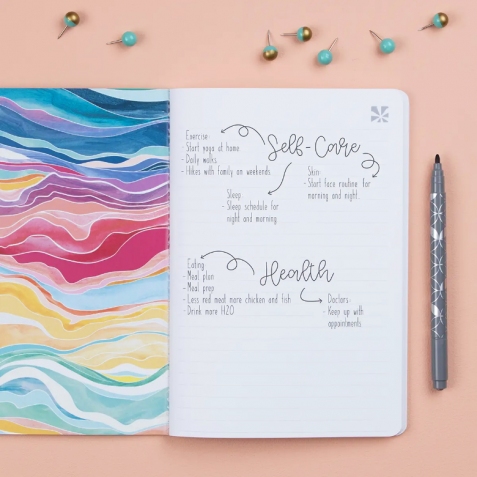 Self-Care
Exercise
- Start yoga at home
- Daily walks
- Hikes with family on weekends
Skin
- Start face routine for
morning and night.
Sleep
- Sleep schedule for
night and morning
Health
Eating
- Meal plan
- Meal prep
- Less red meat more chicken and fish
- Drink more H2O
Doctors
- Keep up with
appointments